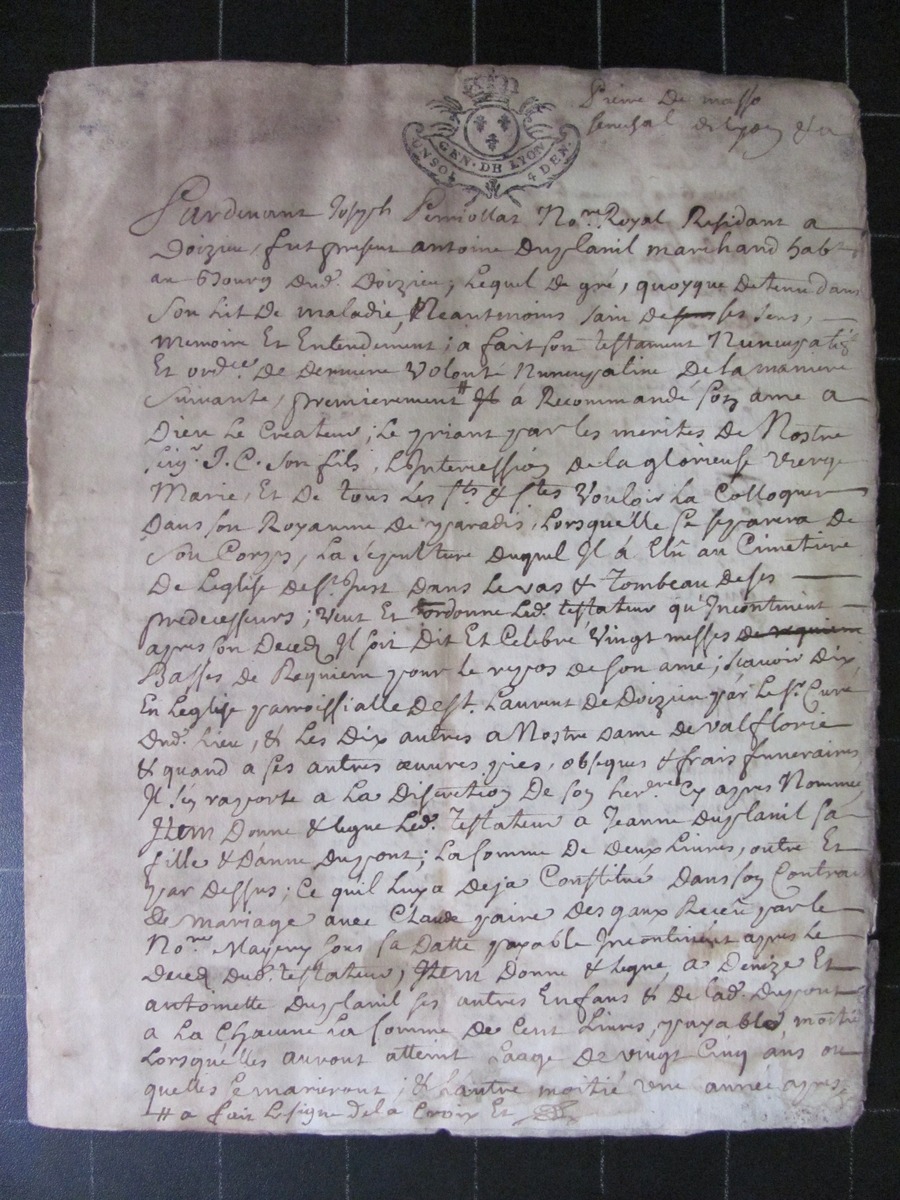 Pierre De masso
senechal de Lyon & a
GEN. DE LYON
UN SOL 4 DEN.
Pardevant Joseph Perriollat No.re Royal Residant a
Doizieu, fut present antoine Duplanil marchand hab
au Bourg dud. Doizieu, Lequel de gré, quoyque detenu dans
Son Lit de maladie, Neantmoins sain de ses sens,
memoire Et Entendement; a fait son testament Nuncupatif
Et ord.ce De derniere Volonté Nuncupative De la maniere
Suivante, premierement # Il à Recommandé son ame a
Dieu Le Createur; Le priant par les merites de Nostre
Seig.r J. C. son fils, L'Intercession de la glorieuse Vierge
Marie, Et De tous Les S.ts & S.tes Vouloir La Colloquer
Dans son Royaume De paradis, Lorsquelle se separera de
Son Corps, La sepulture duquel Il à Elû au Cimetiere
De Leglise de S.t Just Dans Le vas & Tombeau de ses
predecesseurs; Veut Et ordonne Led. testateur qu'Incontinent
apres son Deced Il soit Dit Et Celebré Vingt messes de requiem
Basses de Requiem pour le repos de son ame; scavoir Dix,
En Leglise parroissialle de S.t Laurent De Doizieu par Le S.r Curé
Dud. Lieu, & Les Dix autres a Nostre Dame de Valflorie
& quand a ses autres œuvres pies, obseques & frais funeraires
Il s'en raporte a La Discretion De son her.ere Cy apres Nommé,
Item Donne & legue Led. Testateur a Jeanne Duplanil sa
fille & D'anne Dupont; La somme De deux Livres, outre Et
par Dessus; Ce quil Luy a Deja Constitué Dans son Contrat
De mariage avec Claude paire Desgaux Receu par Le
No.re Mayeux sous sa Datte payable Incontinent apres Le
Deced dud. testateur, Item Donne & legue, a Denize Et
antoinette Duplanil ses autres Enfans & de Lad. Dupont
a La Chacune La somme de Cent Livres, payable moitié
Lorsquelles auront atteint Laage De vingt Cinq ans ou
quelles se marieront; & L'autre moitié une année apres
# a fait Le signe de la Croix Et